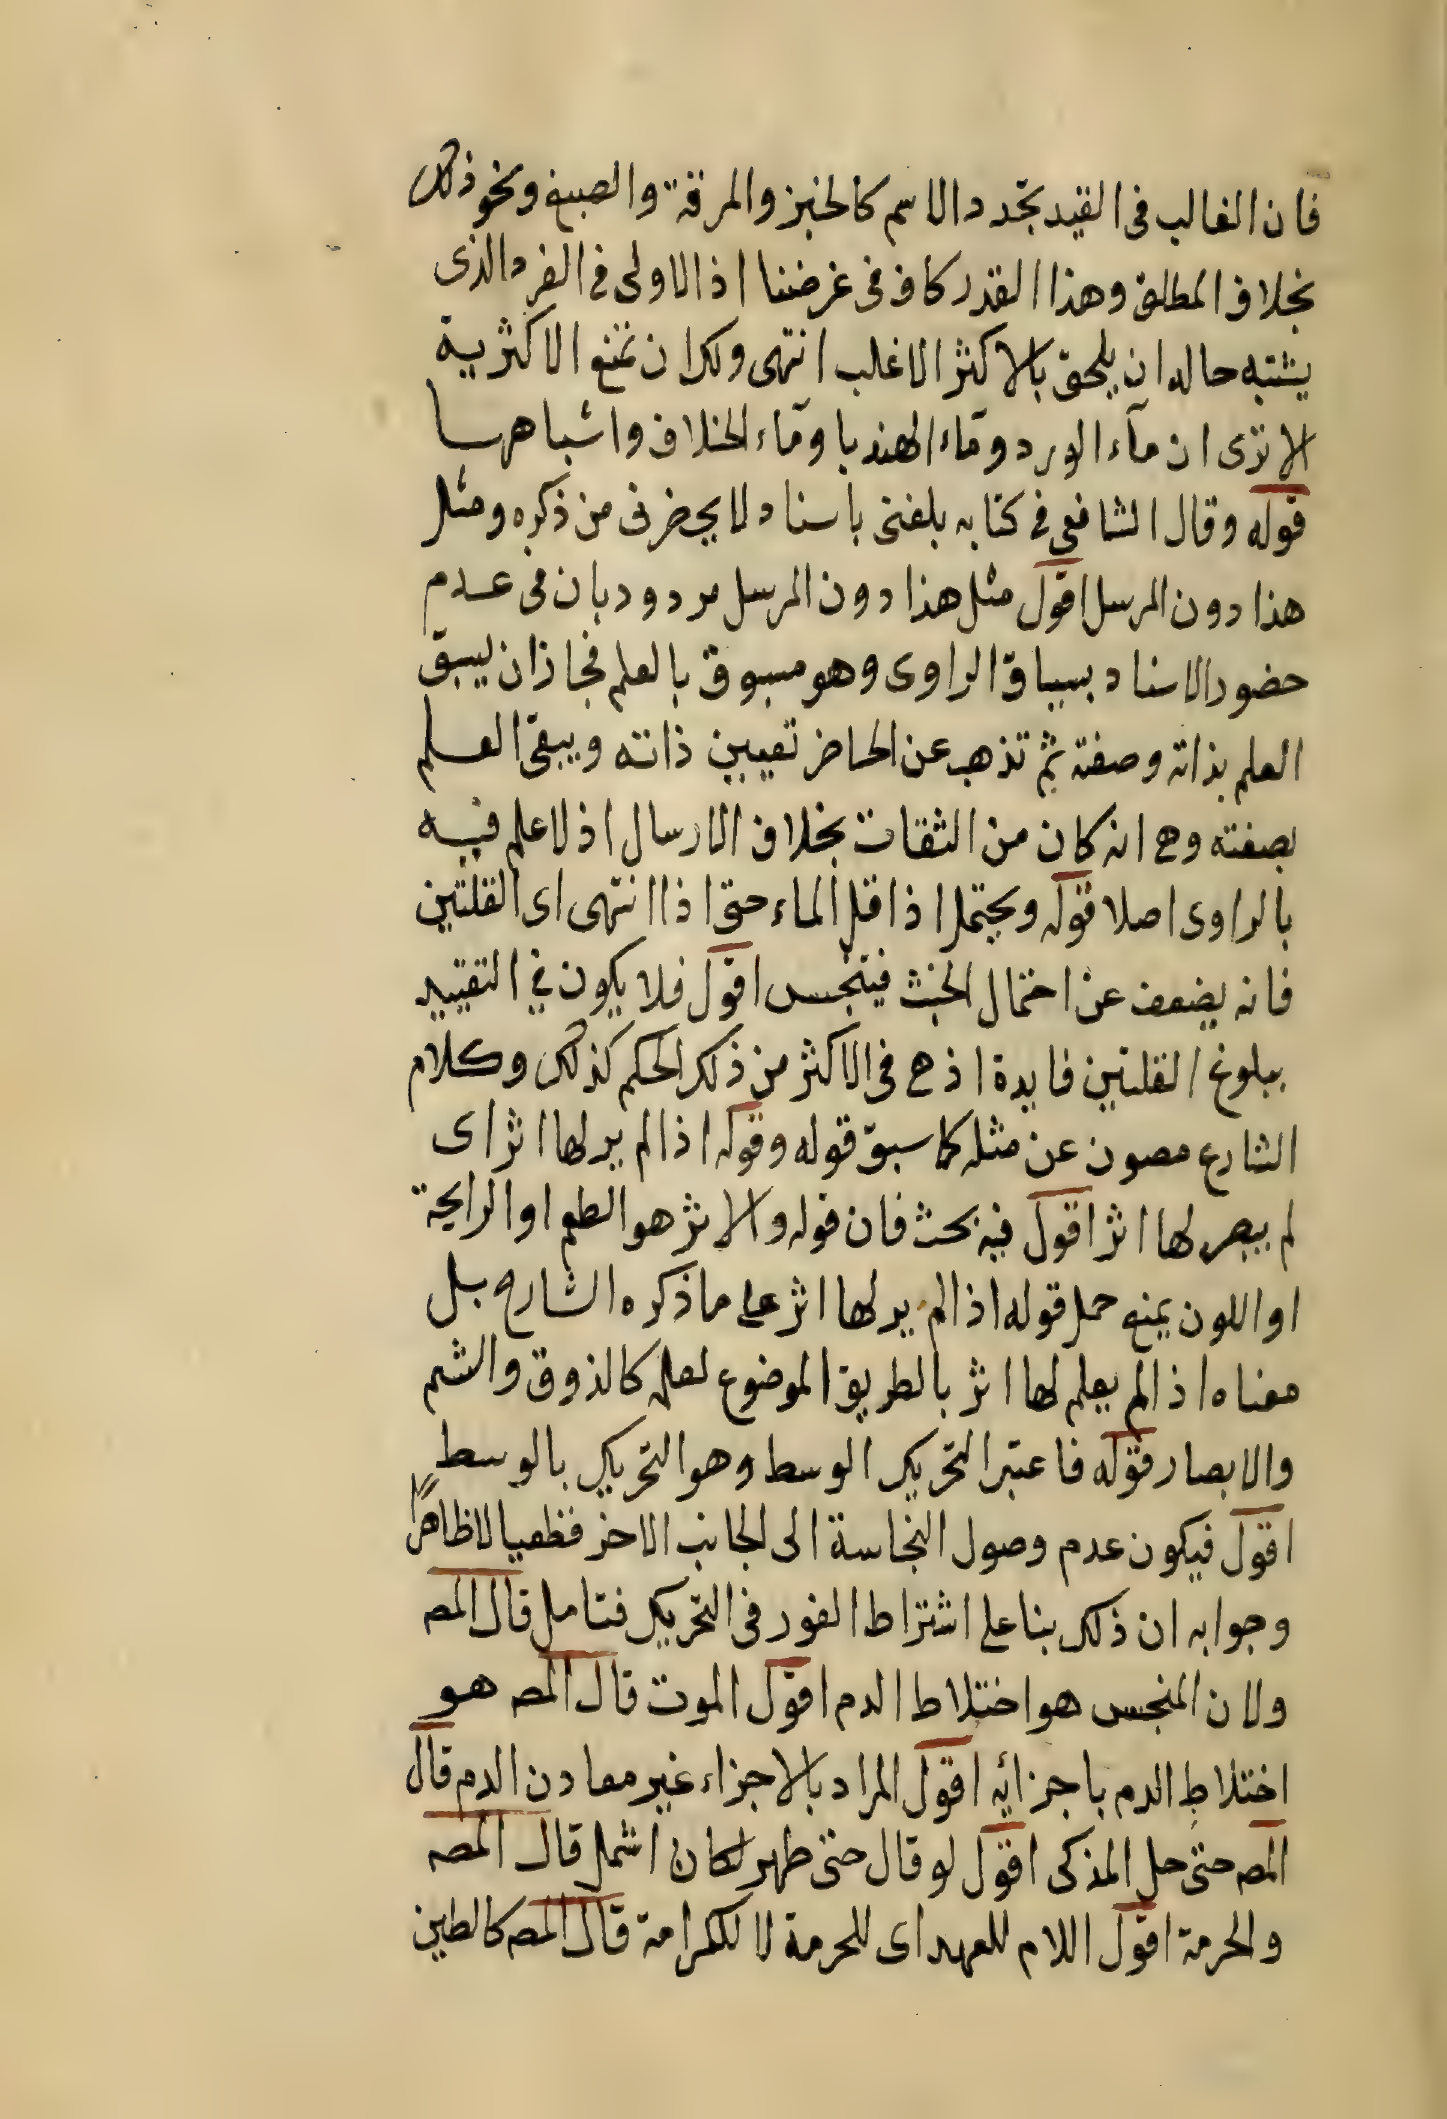 فان الغالب فى القيد تجدد الاسم كالخبز والمرقة والصبغ ونحو ذلك
بخلاف المطلق وهذا القدر كاف فى غرضنا اذ الاولى فى الفرد الذى
يشتبه حاله ان يلحق بالاكثر الاغلب انتهى ولك ان تمنع الاكثرية
الا ترى ان مآء الورد ومآء الهندبا ومآء الخلاف واشباهها
قوله وقال الشافعى فى كتابه بلغنى باسناد لا يحضرنى من ذكره ومثل
هذا دون المرسل اقول مثل هذا دون المرسل مردود بان فى عدم
حضور الاسناد بسباق الراوى وهو مسبوق بالعلم فجاز ان يسبق
العلم بذاته وصفته ثم تذهب عن الحاضر تعيين ذاته ويبقى العلم
بصفته وهى انه كان من الثقات بخلاف الارسال اذ لا علم فيه
بالراوى اصلا قوله ويحتمل اذا قل الماء حتى اذا انتهى اى القلتين
فانه يضعف عن احتمال الخبث فيتنجس اقول فلا يكون فى التقييد
ببلوغ القلتين فايدة اذ ح فى الاكثر من ذلك الحكم كذلك وكلام
الشارع مصون عن مثله كما سبق قوله وقوله اذا لم ير لها اثر اى
لم يبصر لها اثر اقول فيه بحث فان قوله والاثر هو الطعم او الرايحة
او اللون يمنع حمل قوله اذا لم ير لها اثر على ما ذكره الشارح بل
معناه اذا لم يعلم لها اثر بالطريق الموضوع لعلمه كالذوق والشم
والابصار قوله فاعتبر التحريك الوسط وهو التحريك بالوسط
اقول فيكون عدم وصول النجاسة الى الجانب الاخر قطعيا لا ظاهرا
وجوابه ان ذلك بنا على اشتراط الفور فى التحريك فتامل قال المصـ
ولان المنجس هو اختلاط الدم اقول الموت قال المصـ هو
اختلاط الدم باجزائه اقول المراد بالاجزاء غير معادن الدم قال
المصـ حتى حل المذكى اقول لو قال حتى طهر لكان اشمل قال المصـ
والحرمة اقول اللام للعهد اى للحرمة لا للكرامة قال المصـ كالطين